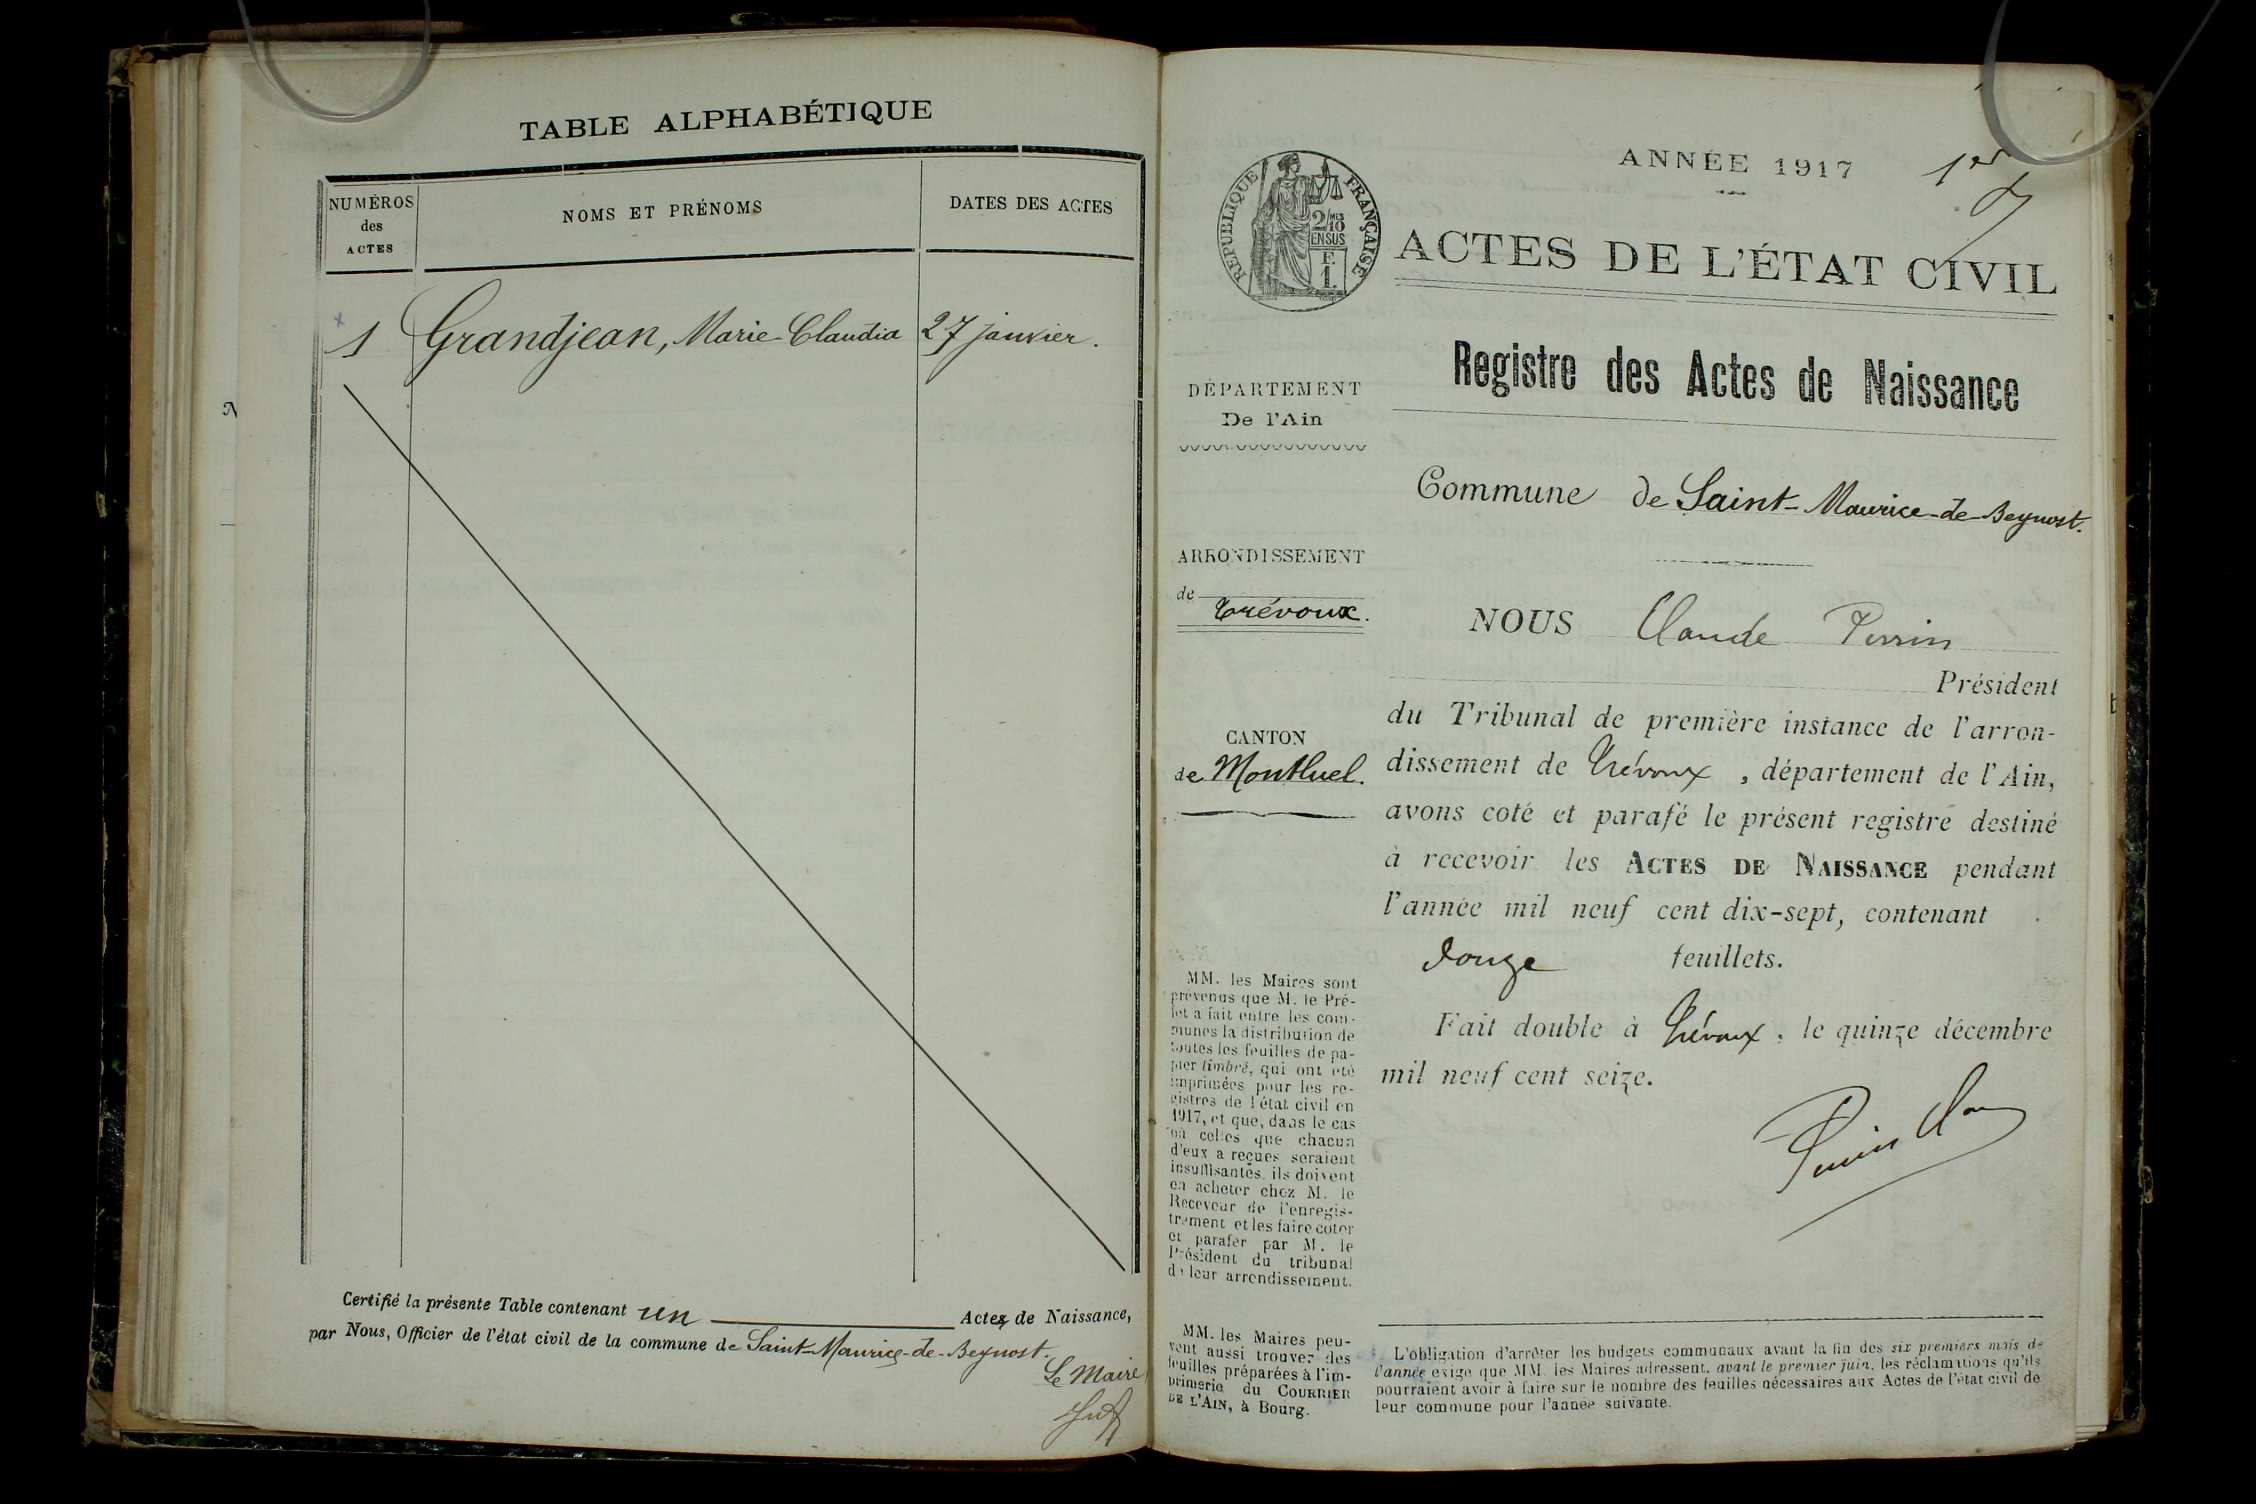 TABLE ALPHABÉTIQUE
NUMÉROS
des
ACTES
NOMS ET PRÉNOMS
DATES DES ACTES
1 Grandjean, Marie-Claudia 27 janvier.
Certifié la présente Table contenant un Actes de Naissance,
par Nous, Officier de l'état civil de la commune de Saint-Maurice-de-Beynost.
Le Maire
ANNÉE 1917 1er
RÉPUBLIQUE FRANÇAISE
2/10 MES
EN SUS
F.
1.
ACTES DE L'ÉTAT CIVIL
Registre des Actes de Naissance
DÉPARTEMENT
De l'Ain
Commune de Saint-Maurice-de-Beynost.
ARRONDISSEMENT
de Trévoux.
CANTON
de Montluel.
NOUS Claude Perrin
Président
du Tribunal de première instance de l'arron-
dissement de Trévoux, département de l'Ain,
avons coté et parafé le présent registre destiné
à recevoir les ACTES DE NAISSANCE pendant
l'année mil neuf cent dix-sept, contenant
douze feuillets.
Fait double à Trévoux, le quinze décembre
mil neuf cent seize.
MM. les Maires sont
prévenus que M. le Pré-
fet a fait entre les com-
munes la distribution de
toutes les feuilles de pa-
pier timbré, qui ont été
imprimées pour les re-
gistres de l'état civil en
1917, et que, dans le cas
où celles que chacun
d'eux a reçues seraient
insuffisantes, ils doivent
en acheter chez M. le
Receveur de l'enregis-
trement et les faire coter
et parafer par M. le
Président du tribunal
de leur arrondissement.
MM. les Maires peu-
vent aussi trouver des
feuilles préparées à l'im-
primerie du COURRIER
DE L'AIN, à Bourg.
L'obligation d'arrêter les budgets communaux avant la fin des six premiers mois de
l'année exige que MM. les Maires adressent, avant le premier juin, les réclamations qu'ils
pourraient avoir à faire sur le nombre des feuilles nécessaires aux Actes de l'état civil de
leur commune pour l'année suivante.